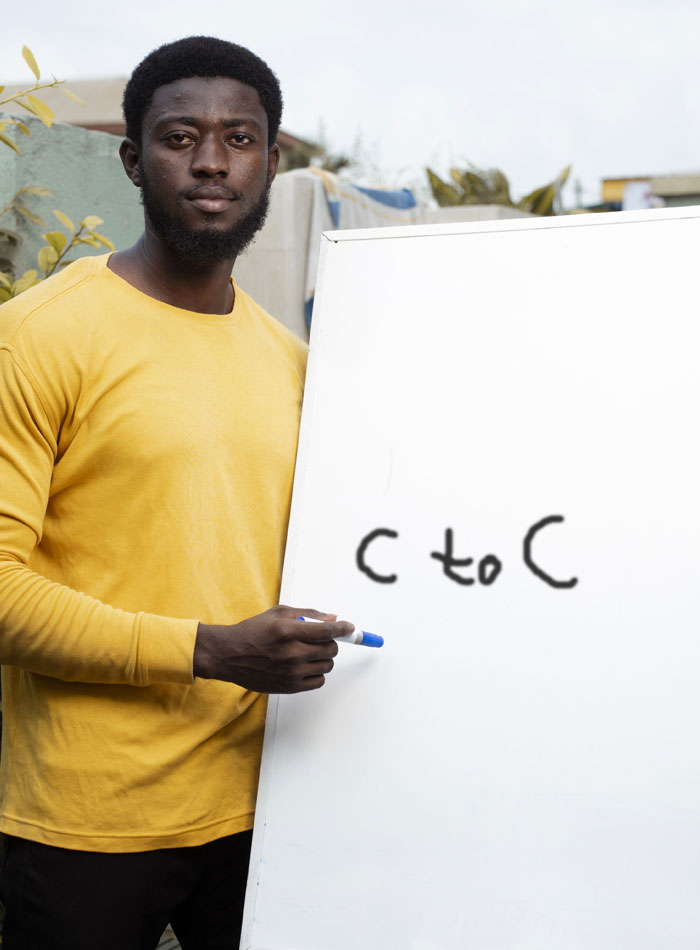 C to C